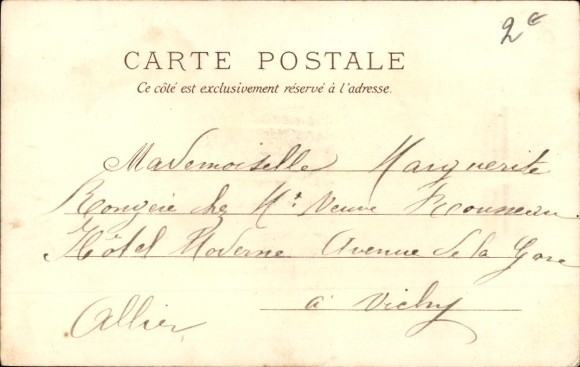 2e
CARTE POSTALE
Ce côté est exclusivement réservé à l'adresse.
Mademoiselle Marguerite
chez Me Veuve Rousseau
Hôtel Moderne Avenue de la Gare
à Vichy
Allier